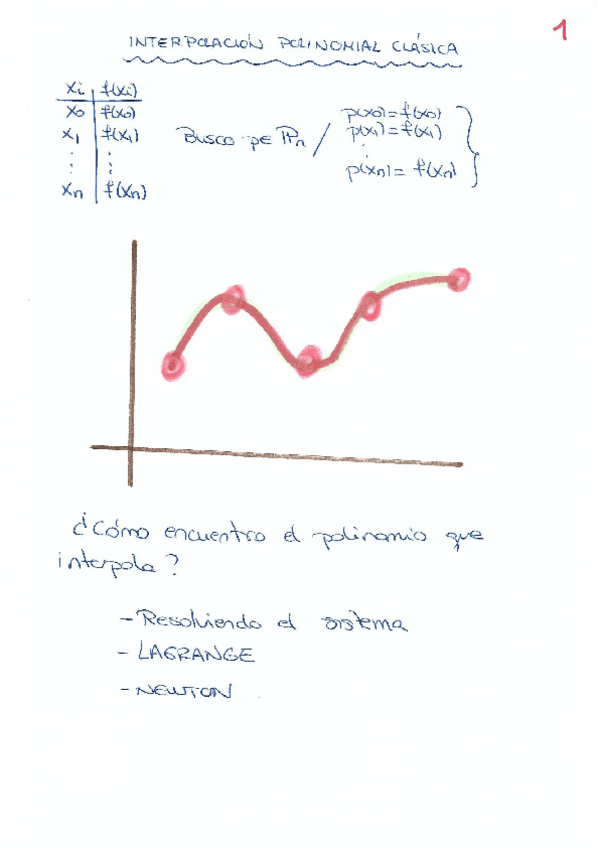 1
INTERPOLACIÓN POLINOMIAL CLÁSICA
xi | f(xi)
x0 | f(x0)
x1 | f(x1)
⋮ | ⋮
xn | f(xn)
Busco p∈ Pn /
p(x0) = f(x0)
p(x1) = f(x1)
⋮
p(xn) = f(xn)
¿Cómo encuentro el polinomio que
interpola?
- Resolviendo el sistema
- LAGRANGE
- NEWTON